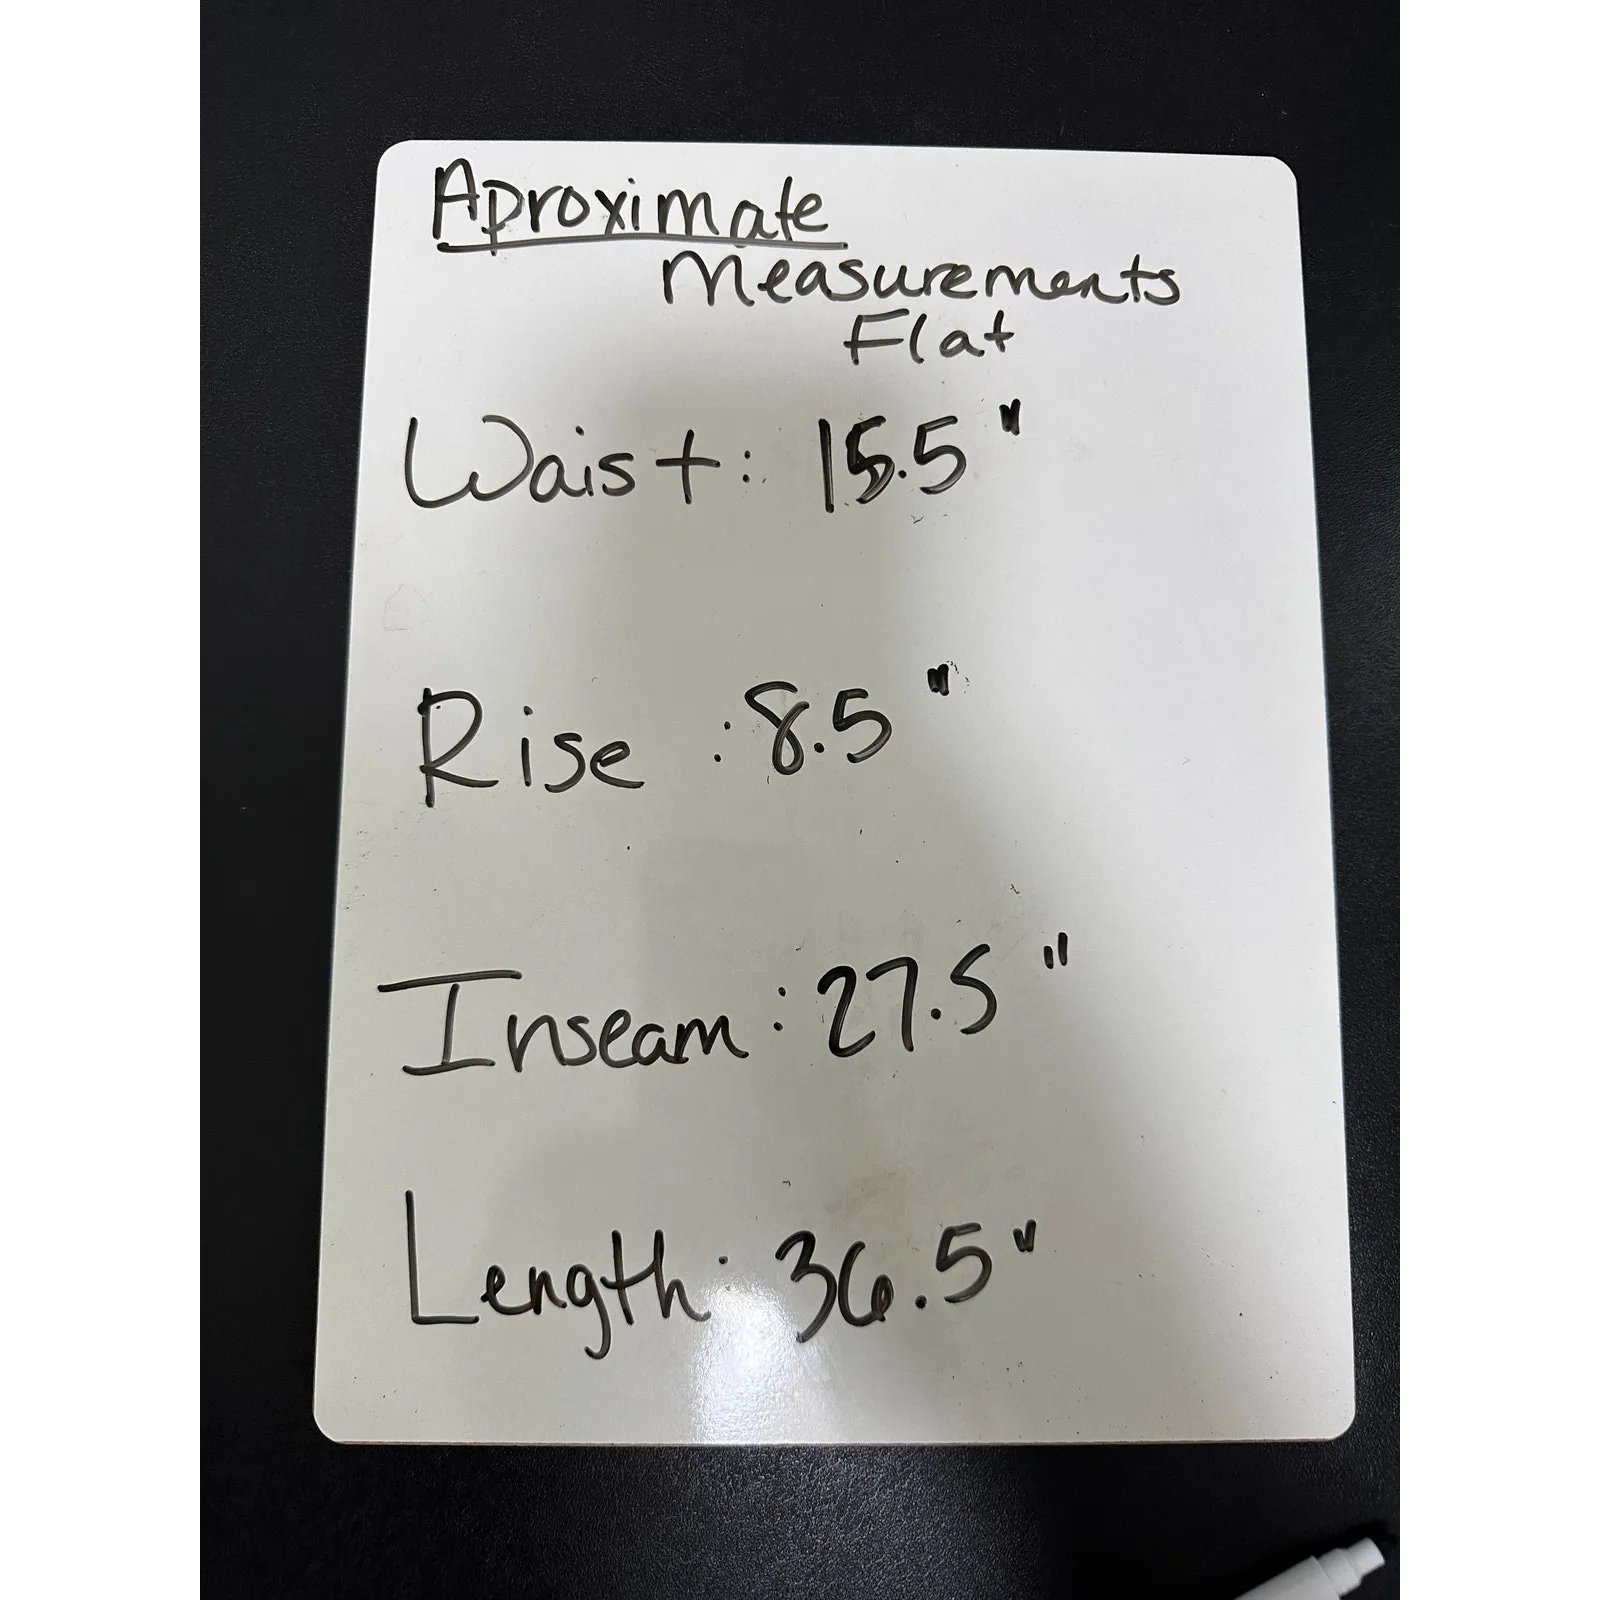 Aproximate
Measurements
Flat
Waist: 15.5"
Rise : 8.5"
Inseam: 27.5"
Length: 36.5"